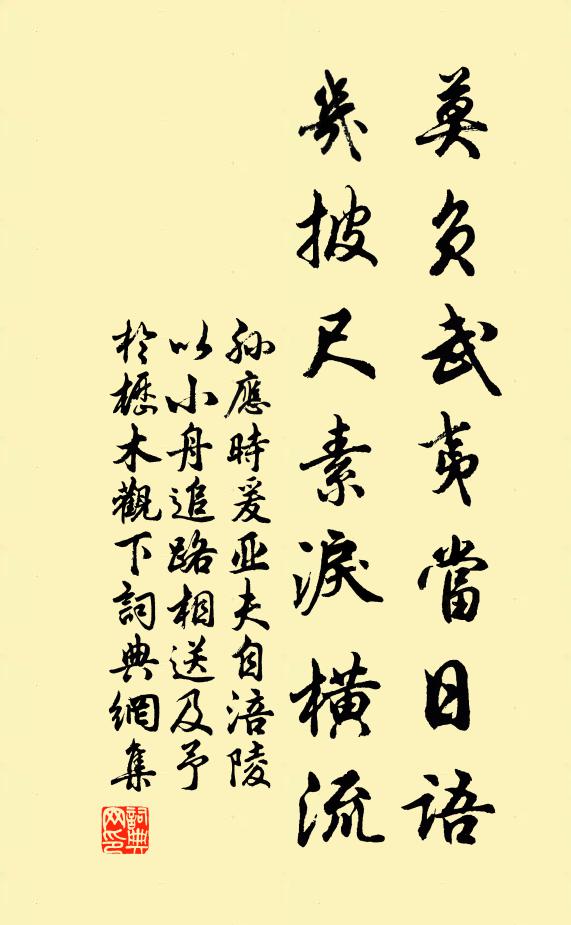 莫負武夷當日語
幾披尺素淚橫流
孫應時爰亚夫自涪陵
以小舟追路相送及予
於櫪木觀下詞典網集
詞典网印